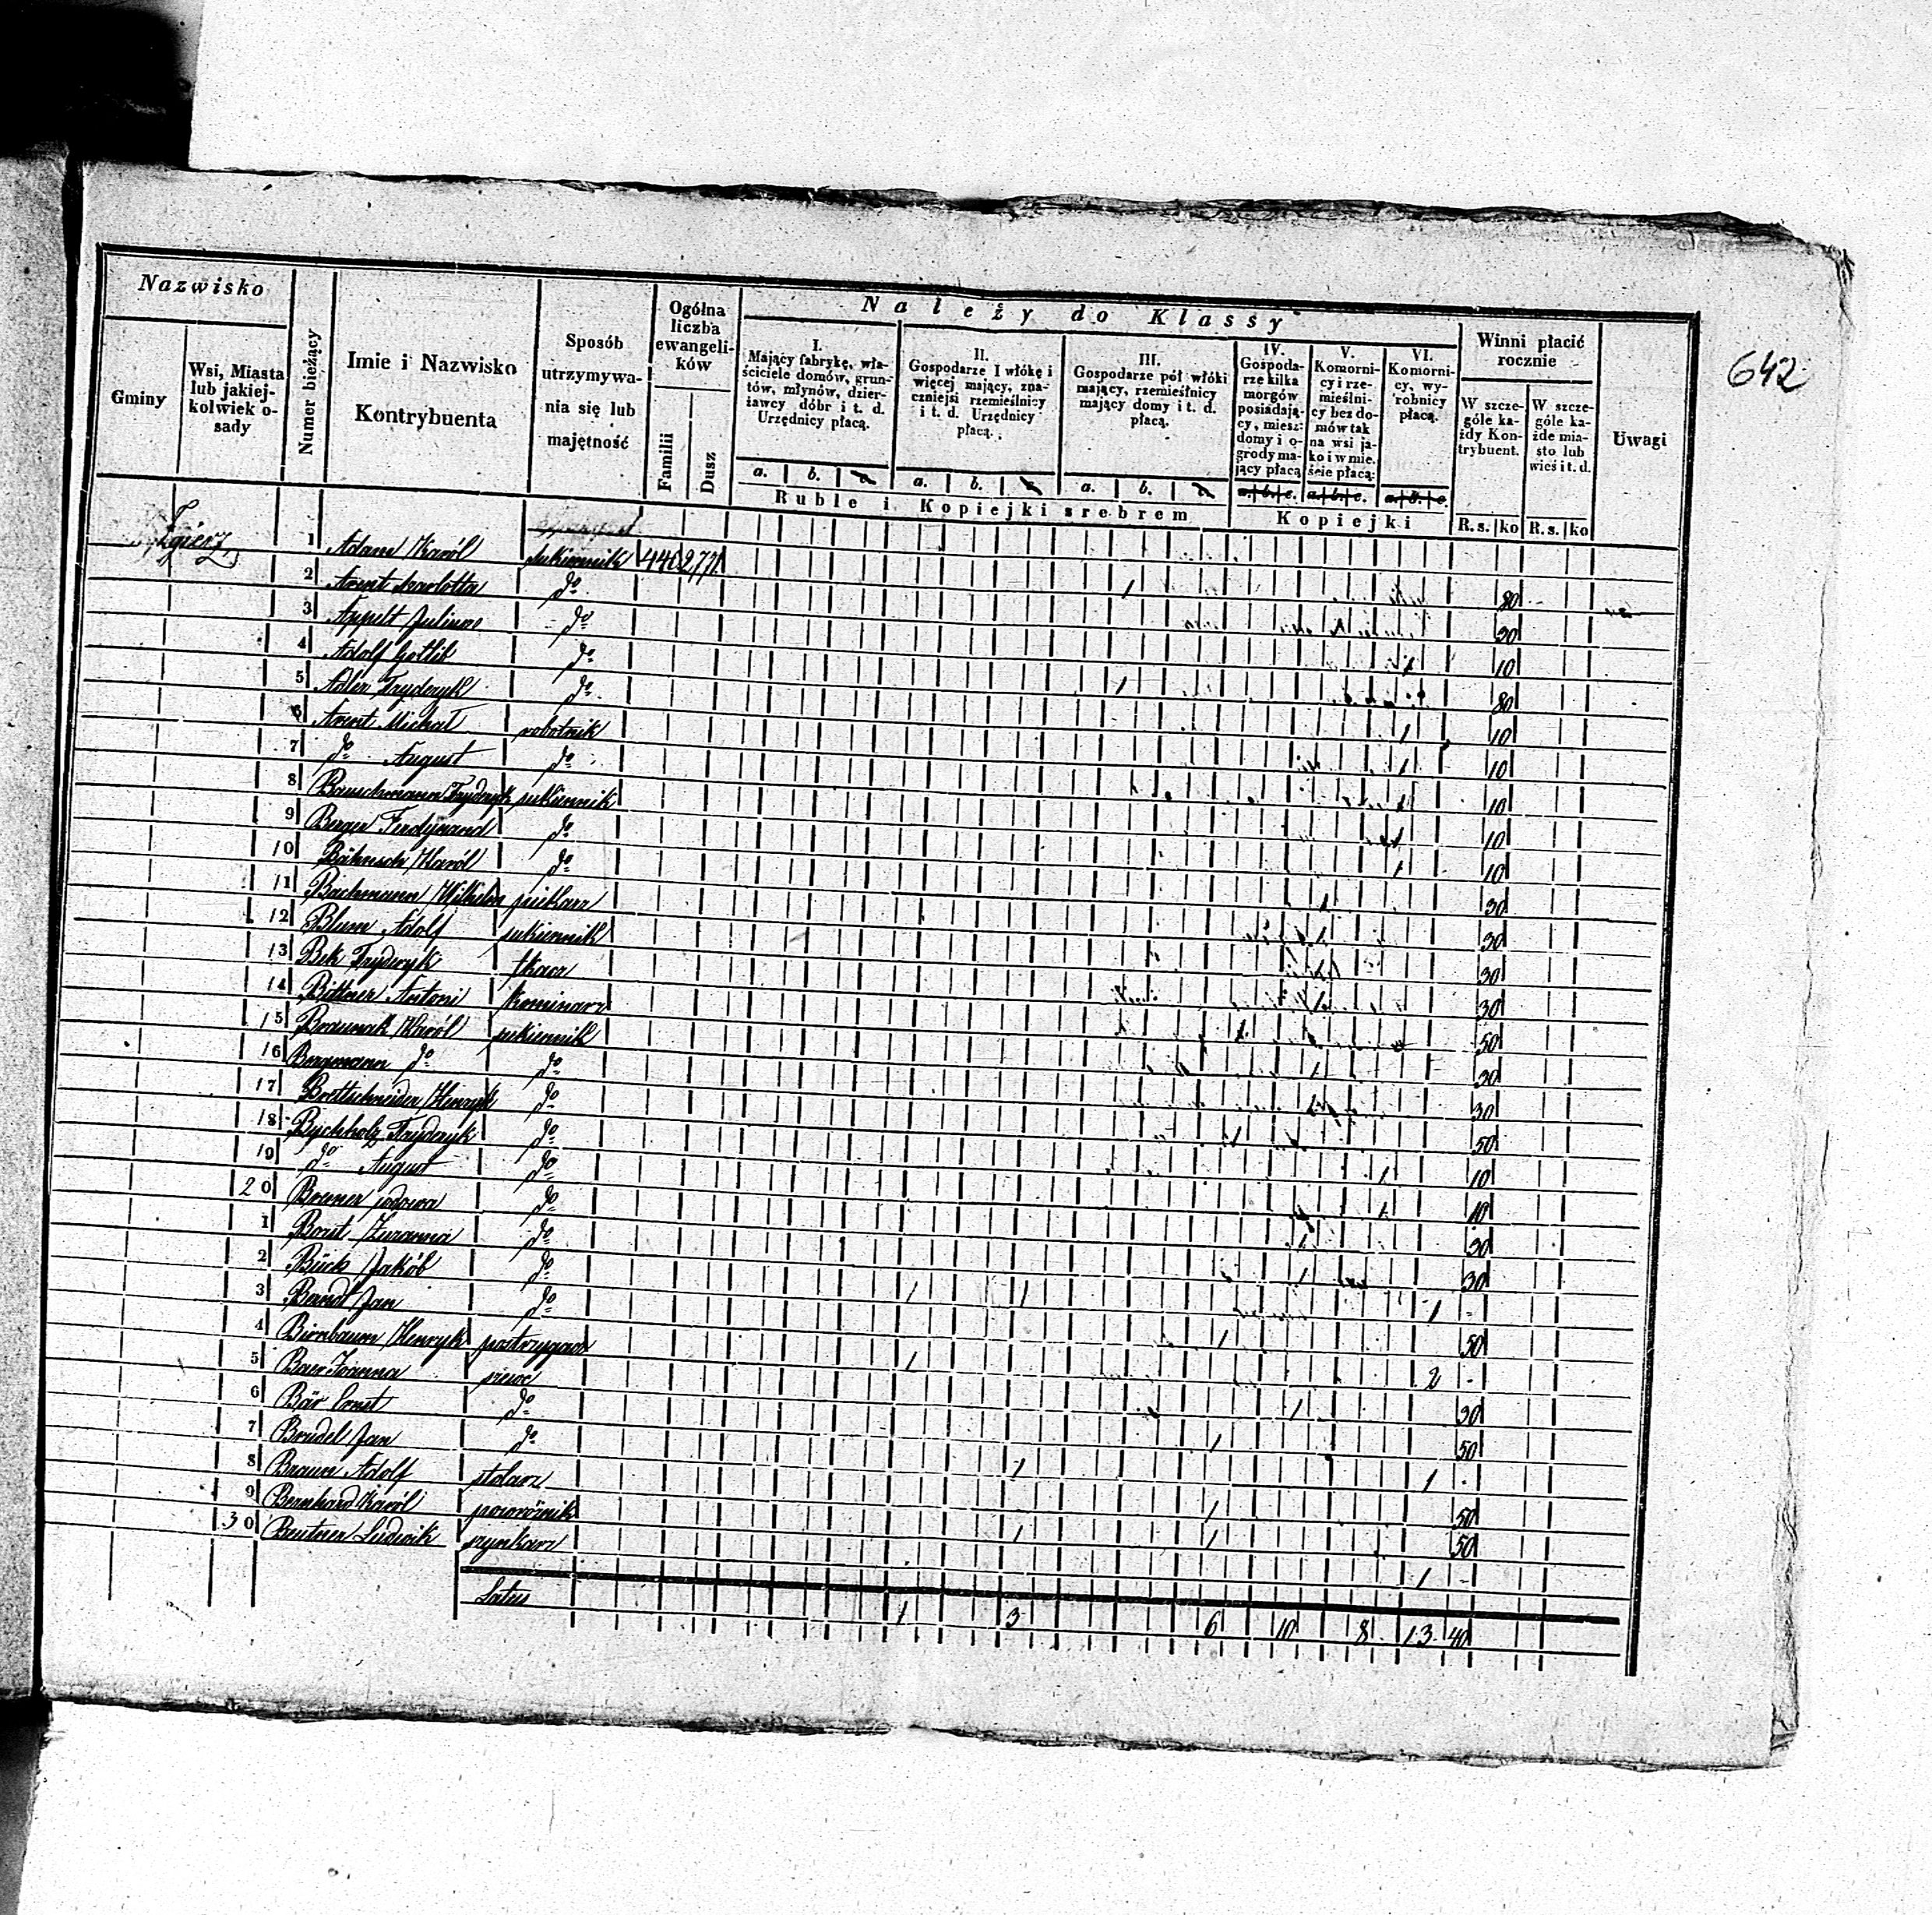 642
Nazwisko
Gminy
Wsi, Miasta lub jakiej-kolwiek o-sady
Numer bieżący
Imie i Nazwisko
Kontrybuenta
Sposób utrzymywa-nia się lub majętność
Ogólna liczba ewangeli-ków
Familii
Dusz
Należy do Klassy
I. Mający fabrykę, wła-ściciele domów, grun-tów, młynów, dzier-żawcy dóbr i t. d. Urzędnicy płacą.
II. Gospodarze 1 włókę i więcej mający, zna-czniejsi rzemieślnicy i t. d. Urzędnicy płacą.
III. Gospodarze pół włóki mający, rzemieślnicy mający domy i t. d. płacą.
IV. Gospoda-rze kilka morgów posiadają-cy, miesz: domy i o-grody ma-jący płacą
V. Komorni-cy i rze-mieślni-cy bez do-mów tak na wsi ja-ko i w mie-ście płacą:
VI. Komorni-cy, wy-robnicy płacą.
Winni płacić rocznie
W szcze-góle ka-żdy Kon-trybuent.
W szcze-góle ka-żde mia-sto lub wieś i t. d.
Uwagi
a. b. c. a. b. c. a. b. c. a. b. c. a. b. c. a. b. c.
Ruble i Kopiejki srebrem
Kopiejki
R. s. ko R. s. ko
Zgierz
1 Adam Karól sukiennik 440 2771
2 Arent Karlotta do 1 80
3 Appelt Julius do 30
4 Adolf Gotlib do 1 10
5 Adler Fryderyk do 1 80
6 Arent Michał robotnik 1 10
7 do August do 1 10
8 Bauchmann Fryderyk sukiennik 1 10
9 Berger Ferdynand do 1 10
10 Bähnisch Karól do 1 10
11 Bachmann Wilhelm piekarz 1 30
12 Blum Adolf sukiennik 1 30
13 Bek Fryderyk tkacz 1 30
14 Bittner Antoni kominarz 1 30
15 Braunak Karól sukiennik 1 50
16 Bergmann do do 1 30
17 Brettschneider Henryk do 1 30
18 Bychholz Fryderyk do 1 50
19 do August do 1 10
20 do 1 10
1 Borst Zuzanna do 1 30
2 Bück Jakób do 1 30
3 Berndt Jan do 1 1 1 -
4 Birnbaum Henryk postrzygacz 1 50
5 Baer Joanna szewc 1 2 -
6 Bär Ernst do 1 30
7 Brudel Jan do 1 50
8 Braun Adolf stolarz 1 1 -
9 Bernhard Karól powroźnik 1 50
30 Beutner Ludwik szynkarz 1 1 50
1 -
Latus 1 3 6 10 8 13 40